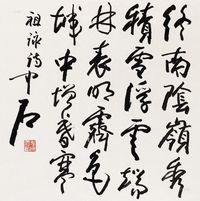 终南阴岭秀
積雪浮雲端
林表明霽色
城中增暮寒
祖詠詩中石